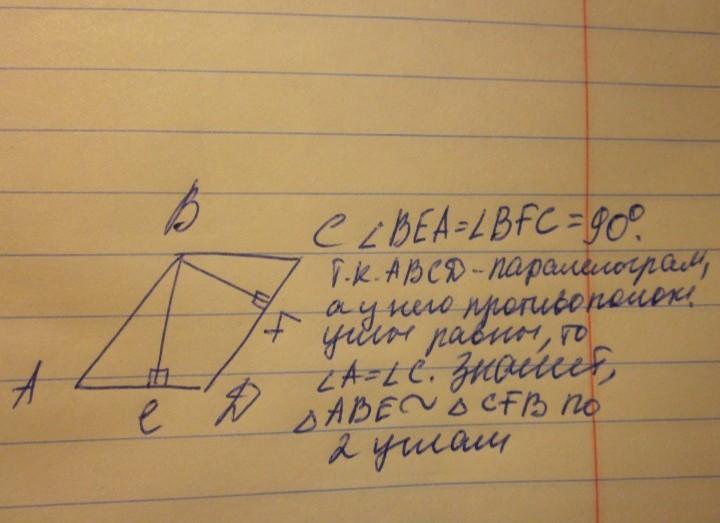 B
C ∠BEA=∠BFC=90°.
т.к. ABCD-паралелограм,
а у него противополож.
F углы равны, то
A ∠A=∠C. Значит,
e D △ABE~△CFB по
2 углам